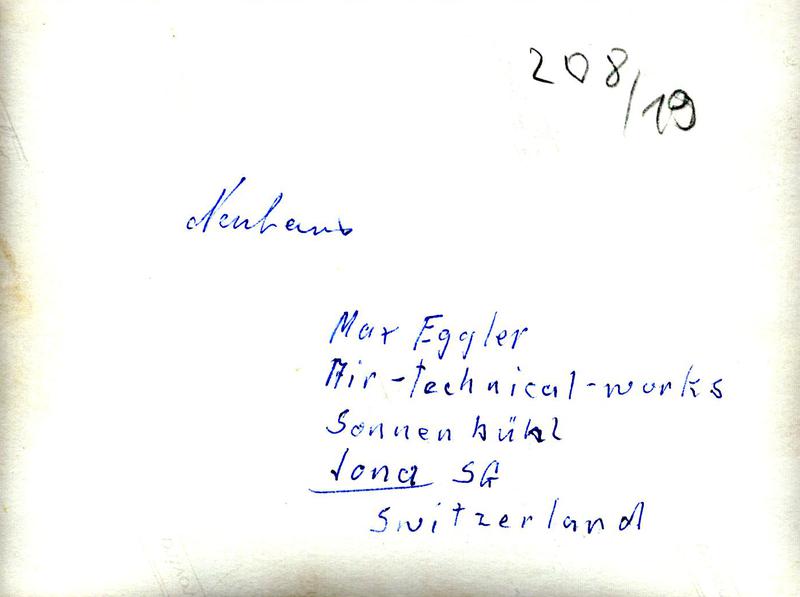 208/19
Neuhaus
Max Eggler
Air-technical-works
Sonnenbühl
Jona SG
Switzerland